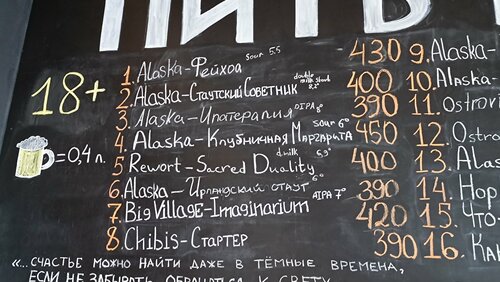 ПИТЬ
18+
=0,4 л.
1. Alaska-Фейхоа sour 5.5 430
2. Alaska-Стаутский Советник double milk stout 8,2° 400
3. Alaska-Ипатерапия DIPA 8° 390
4. Alaska-Клубничная Маргарита sour 6° 450
5 Rewort-Sacred Duality d.milk 5,9° 400
6. Alaska-Ирландский стаут 6° 390
7. Big Village-Imaginarium AIPA 7° 420
8. Chibis-Стартер 390
9. Alaska-
10. Alaska-
11. Ostrovi
12. Ostro
13. Alas
14. Hop
15. Что-
16. Как
"...Счастье можно найти даже в тёмные времена,
если не забывать обращаться к свету